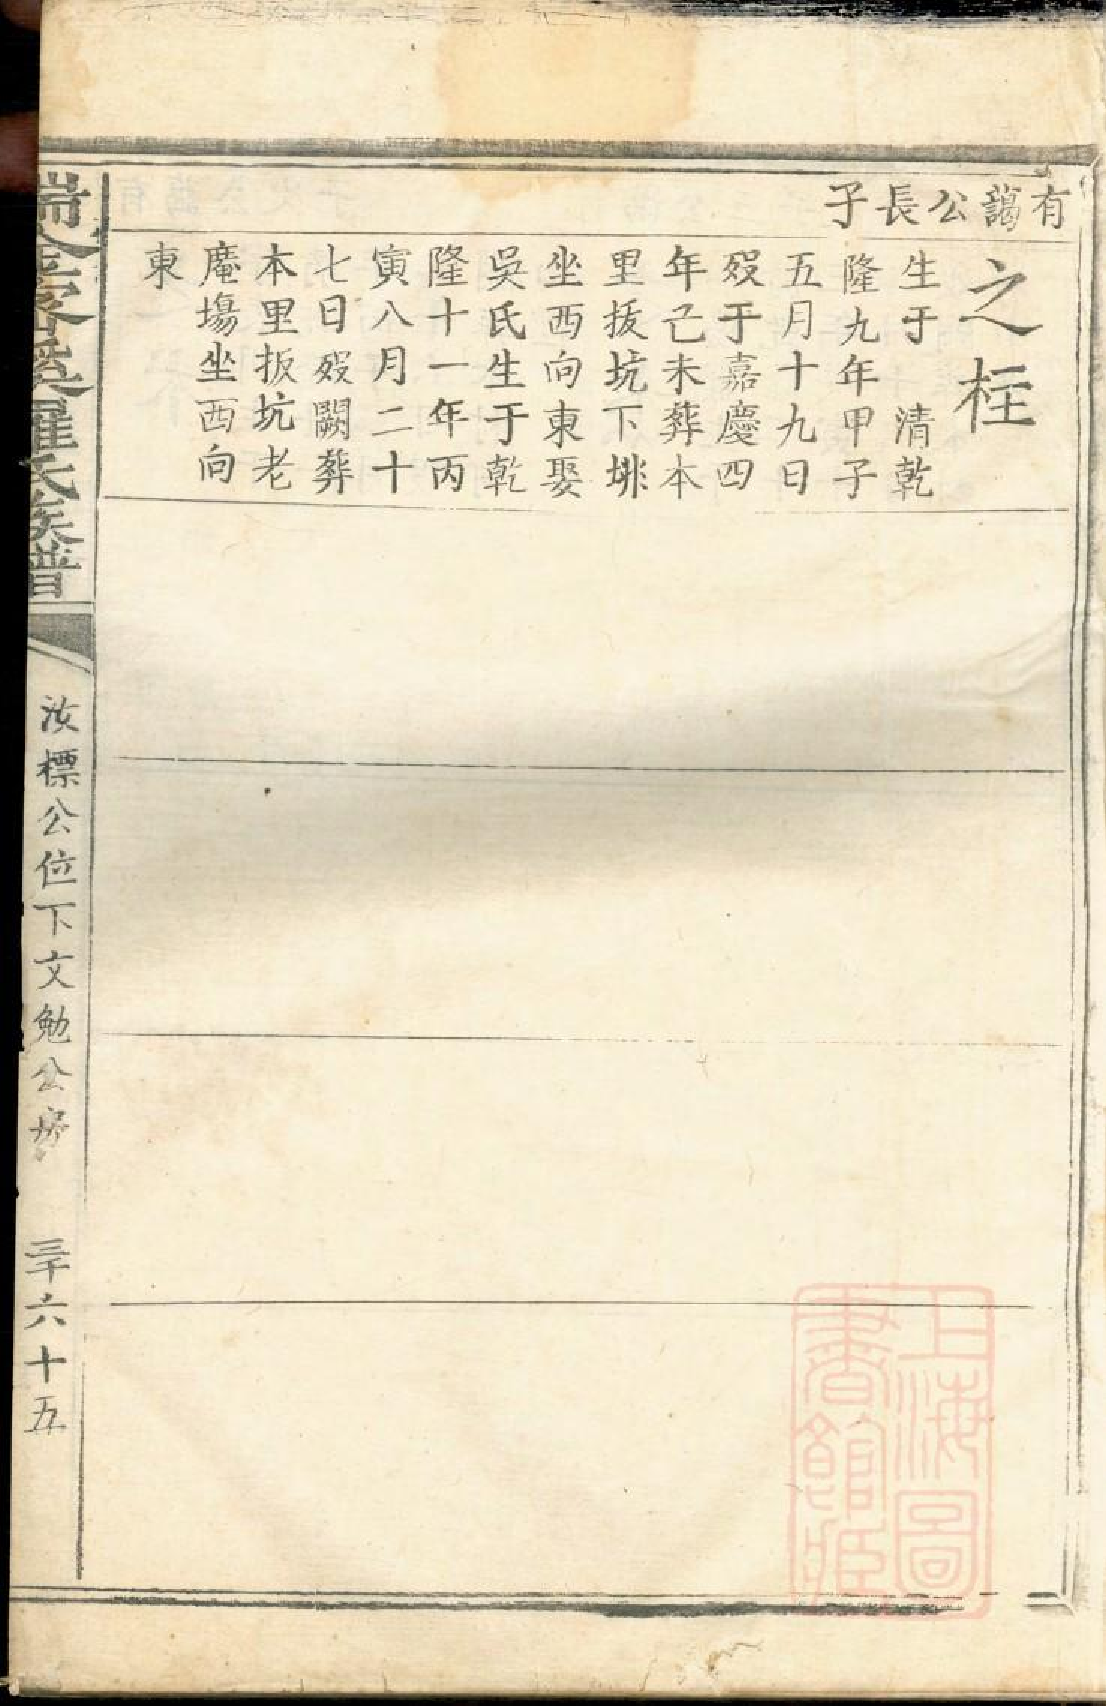 有譪公長子
之
生于　清乾
隆九年甲子
五月十九日
歿于嘉慶四
年己未葬本
里扳坑下垗
坐西向東娶
吳氏生于乾
隆十一年丙
寅八月二十
七日歿闕葬
本里扳坑老
庵塲坐西向
東
瑞金密溪羅氏族譜
汝標公位下文勉公房
三千六十五
上海圖
書館藏